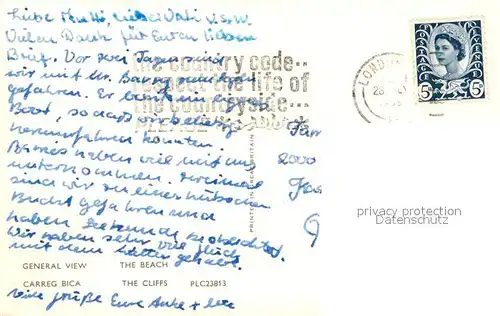 Liebe Mutti, lieber Vati u.s.w.
Vielen Dank für Euren lieben
Brief. Vor zwei Tagen sind
wir mit Mr. Barry
gefahren. Er
Boot, so dass wir beliebig
herumfahren konnten.
Barries haben viel mit uns
unternommen. Zweimal
sind wir zu einer hübschen
Bucht gefahren und
haben Seehunde beobachtet.
Wir haben sehr viel Glück
mit dem Wetter gehabt.
Viele Grüße Eure Anke +
the country code..
respect the life of
the countryside...
LONDON
28
POSTAGE
REVENUE
5D
PRINTED IN GREAT BRITAIN
Fam
2000
privacy protection
Datenschutz
GENERAL VIEW THE BEACH
CARREG BICA THE CLIFFS PLC23813